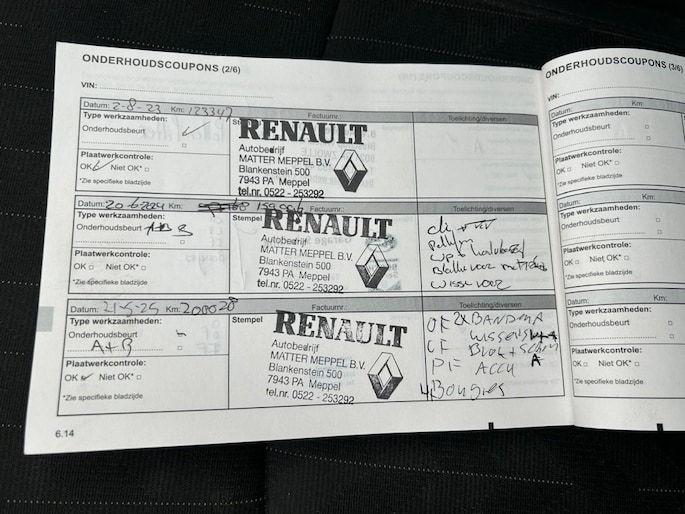 ONDERHOUDSCOUPONS (2/6)
VIN:
Datum: 2-8-23 Km: 123347
Factuurnr.:
Toelichting/diversen
Type werkzaamheden:
Onderhoudsbeurt
Plaatwerkcontrole:
OK Niet OK*
*Zie specifieke bladzijde
RENAULT
Autobedrijf
MATTER MEPPEL B.V.
Blankenstein 500
7943 PA Meppel
tel.nr. 0522 - 253292
Datum: Km:
Type werkzaamheden:
Onderhoudsbeurt
Plaatwerkcontrole:
OK Niet OK*
*Zie specifieke bladzijde
Stempel
RENAULT
Autobedrijf
MATTER MEPPEL B.V.
Blankenstein 500
7943 PA Meppel
tel.nr. 0522 - 253292
Datum: 21-5-25 Km: 200028
Factuurnr.:
Toelichting/diversen
Type werkzaamheden:
Onderhoudsbeurt
A+B
Plaatwerkcontrole:
OK Niet OK*
*Zie specifieke bladzijde
Stempel
RENAULT
Autobedrijf
MATTER MEPPEL B.V.
Blankenstein 500
7943 PA Meppel
tel.nr. 0522 - 253292
OF 2x BANDEN
Wissers
Blok
PF ACCU
4 Bougies
6.14
ONDERHOUDSCOUPONS (3/6)
VIN:
Datum: Km:
Type werkzaamheden:
Onderhoudsbeurt
Plaatwerkcontrole:
OK Niet OK*
*Zie specifieke bladzijde
Datum: Km:
Type werkzaamheden:
Onderhoudsbeurt
Plaatwerkcontrole:
OK Niet OK*
*Zie specifieke bladzijde
Datum: Km:
Type werkzaamheden:
Onderhoudsbeurt
Plaatwerkcontrole:
OK Niet OK*
*Zie specifieke bladzijde